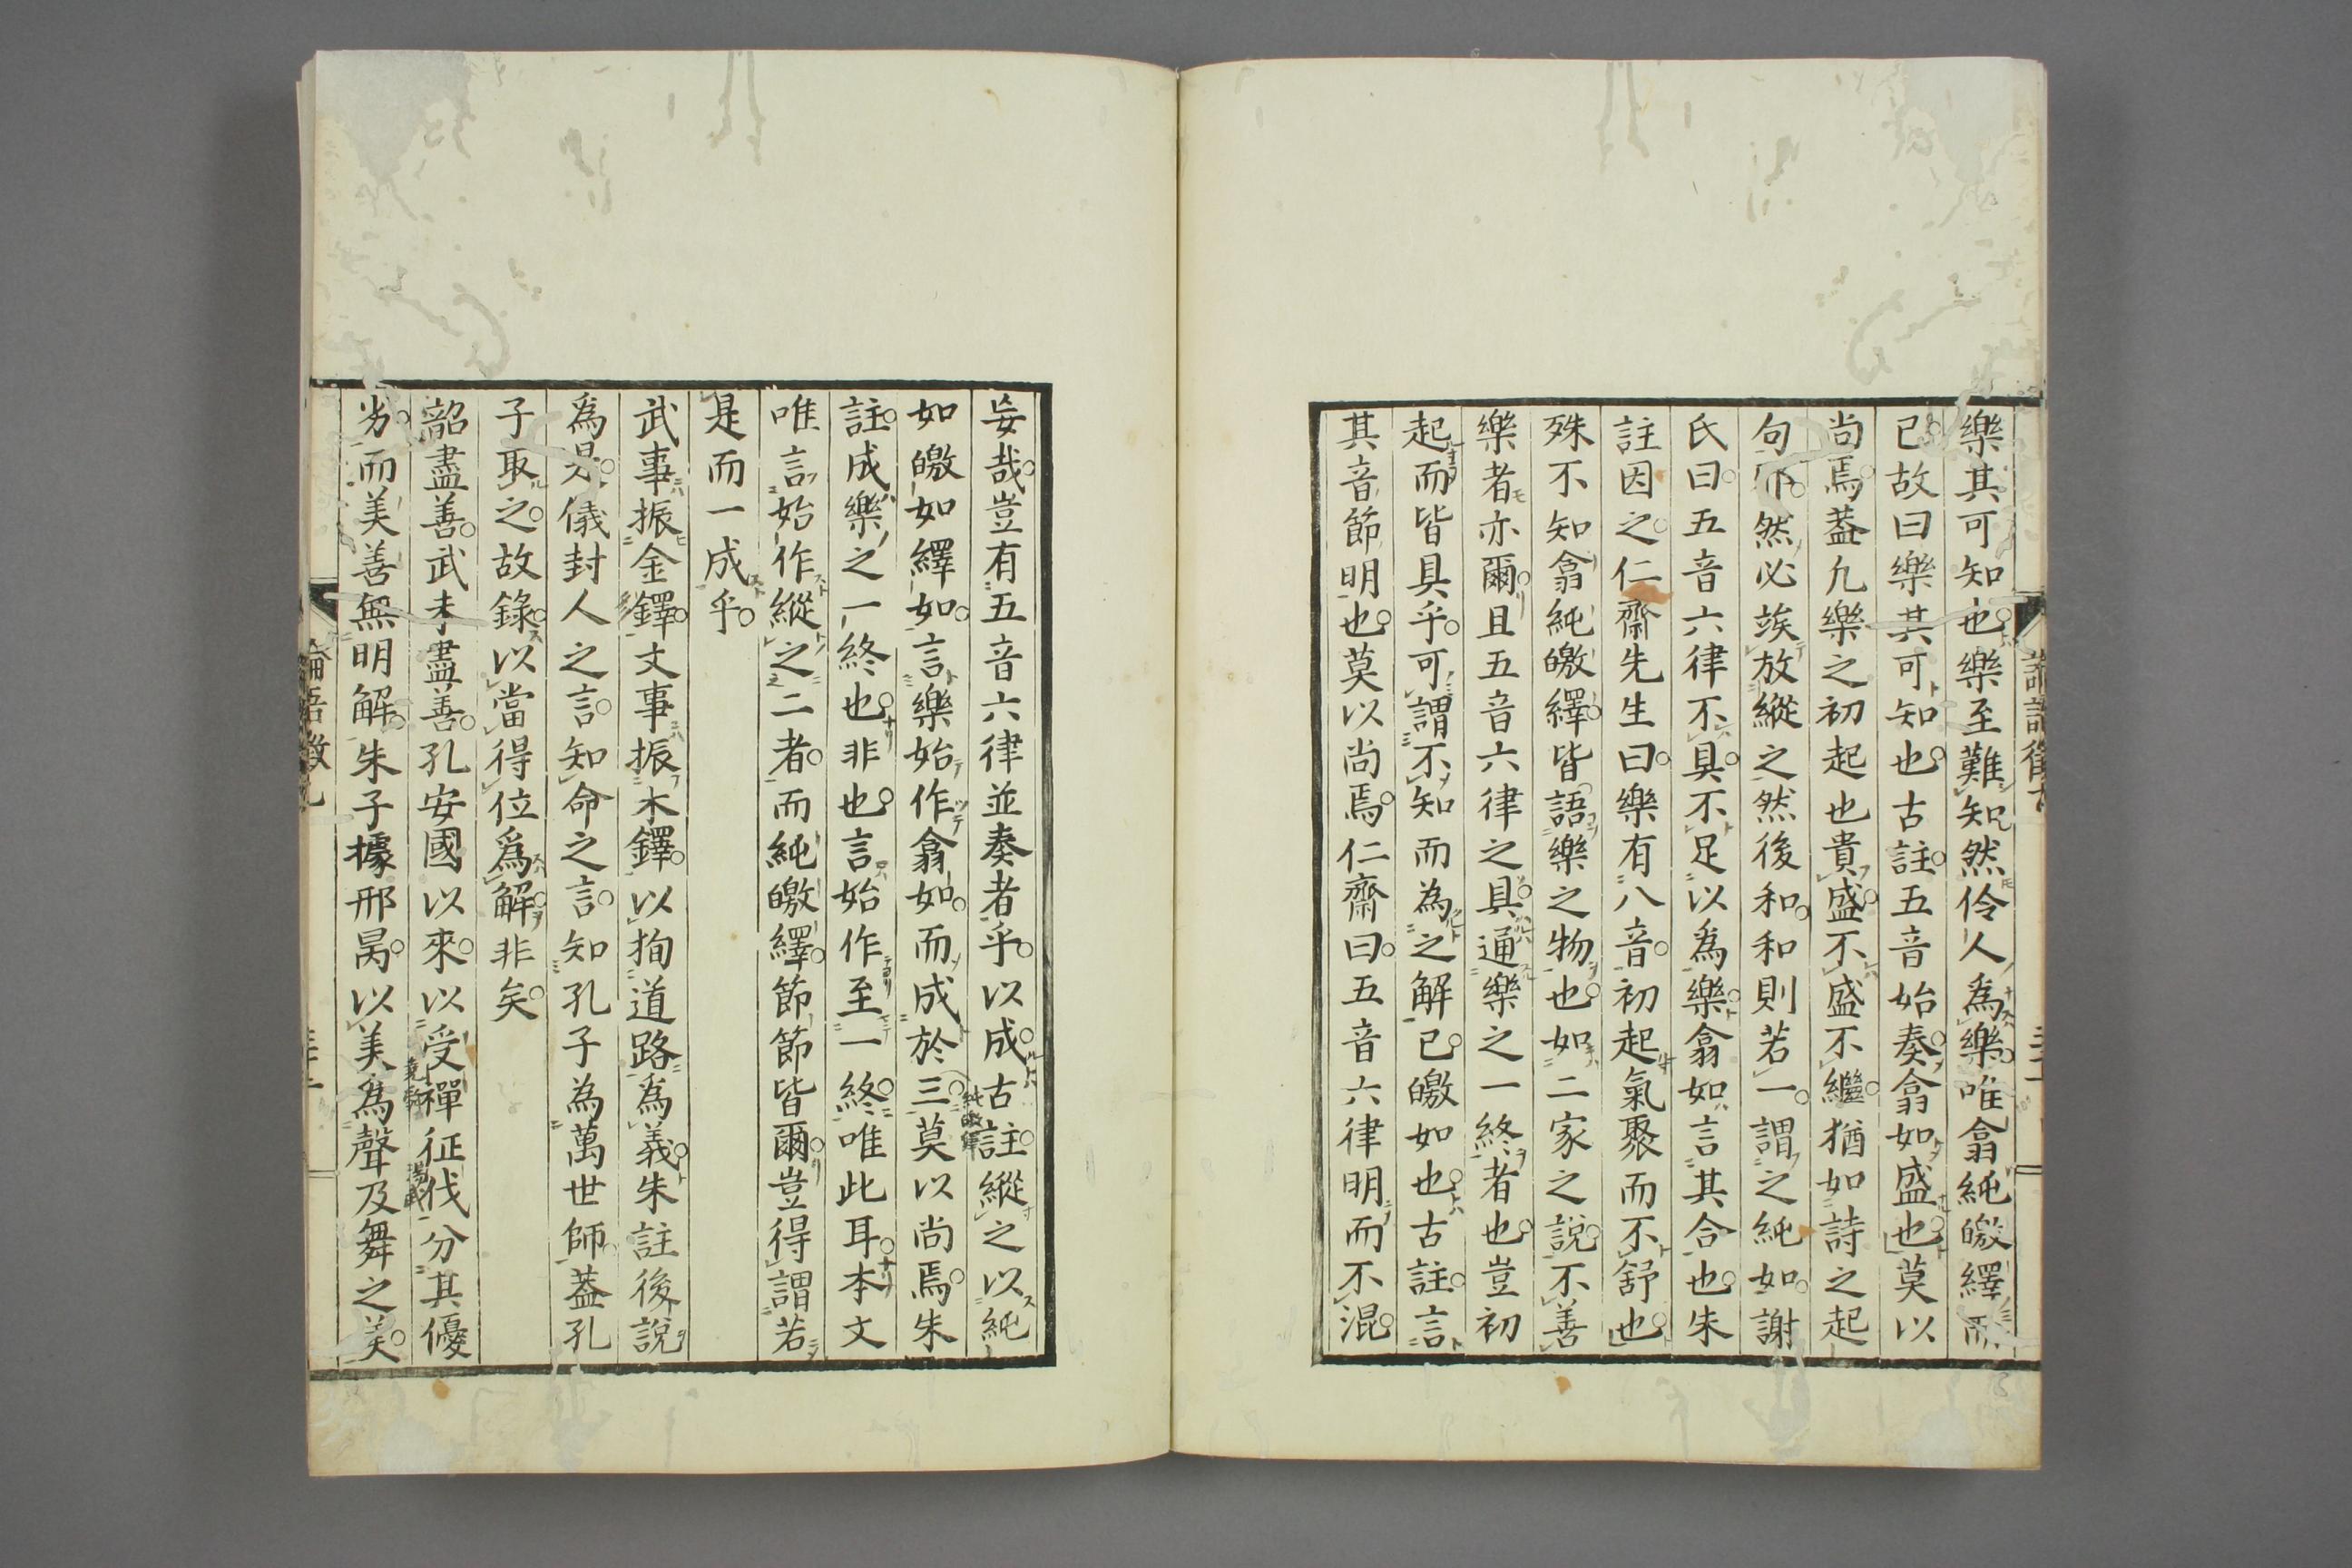 樂其可知也樂至難知然伶人爲樂唯翕純皦繹而
已故曰樂其可知也古註五音始奏翕如盛也莫以
尚焉葢凢樂之初起也貴盛不盛不繼猶如詩之起
句不然必竢放縱之然後和和則若一謂之純如謝
氏曰五音六律不具不足以爲樂翕如言其合也朱
註因之仁齋先生曰樂有八音初起氣聚而不舒也
殊不知翕純皦繹皆語樂之物也如二家之說不善
樂者亦爾且五音六律之具通樂之一終者也豈初
起而皆具乎可謂不知而為之解已皦如也古註言
其音節明也莫以尚焉仁齋曰五音六律明而不混
妄哉豈有五音六律並奏者乎以成古註縱之以純
如皦如繹如言樂始作翕如而成於三莫以尚焉朱
純皦繹
註成樂之一終也非也言始作至一終唯此耳本文
唯言始作縱之二者而純皦繹節節皆爾豈得謂若
是而一成乎
武事振金鐸文事振木鐸以拘道路爲義朱註後說
爲是儀封人之言知命之言知孔子為萬世師葢孔
子取之故錄以當得位爲解非矣
韶盡善武未盡善孔安國以來以受禪征伐分其優
堯舜
湯武
劣而美善無明解朱子據邢昺以美爲聲及舞之美